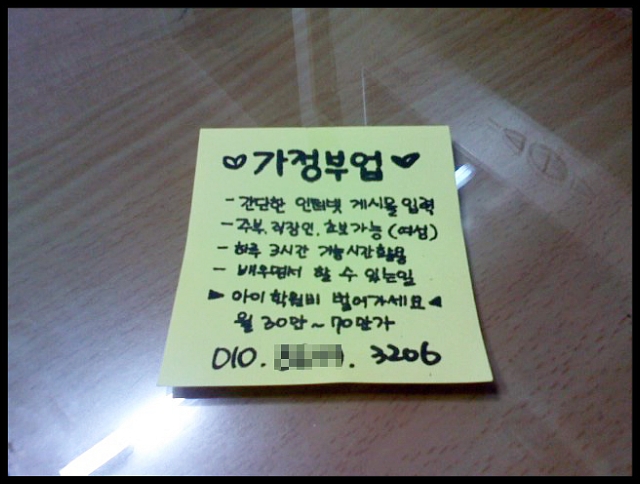 ♡가정부업♡
- 간단한 인터넷 게시물 입력
- 주부, 직장인, 초보가능 (여성)
- 하루 3시간 가능시간활용
- 배우면서 할 수 있는일
▶ 아이 학원비 벌어가세요 ◀
월 30만~70만가
010. . 3206